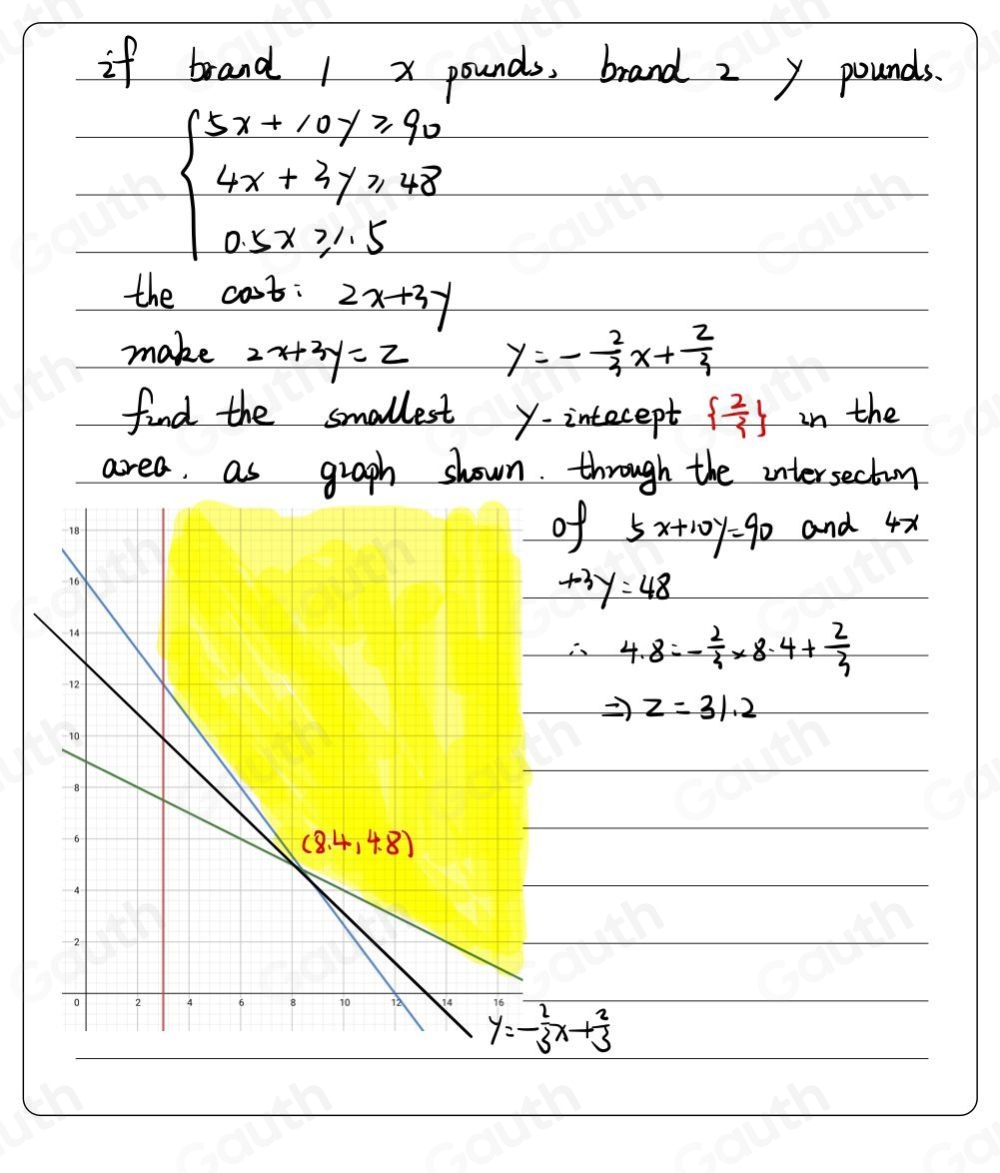 if brand 1 x pounds, brand 2 y pounds.
5x + 10y ⩾ 90
4x + 3y ⩾ 48
0.5x ⩾ 1.5
the cost: 2x+3y
make 2x+3y=z y = -2/3 x + z/3
find the smallest y-intecept {z/3} in the
area. as graph shown. through the intersection
of 5x+10y=90 and 4x
+3y=48
∴ 4.8=-2/3×8.4+z/3
⇒ z=31.2
18
16
14
12
10
8
6
(8.4, 4.8)
4
2
0 2 4 6 8 10 12 14 16
y=-2/3x+z/3
Gauth